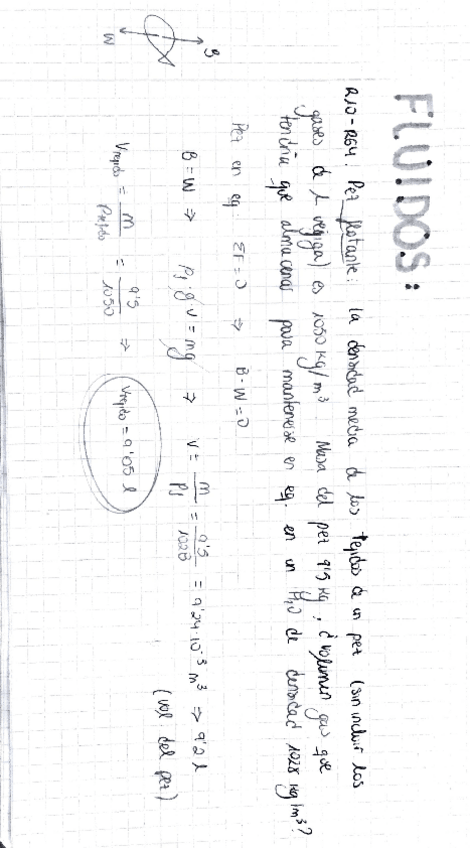 FLUIDOS:
R10-R64: Pez flotante: la densidad media de los tejidos de un pez (sin incluir los
gases de la vejiga) es 1050 kg/m³ Masa del pez 9'5 kg, ¿volumen gas que
tendría que almacenar para mantenerse en eq. en un H₂O de densidad 1028 kg/m³?
Pez en eq. ΣF=0 ⇒ B-W=0
B
W
B=W ⇒ ρf·g·V=mg ⇒ V= m/ρf = 9'5/1028 = 9'24·10⁻³ m³ ⇒ 9'2 l
(vol del pez)
Vtejido = m/ρtejido = 9'5/1050 ⇒ Vtejido = 9'05 l